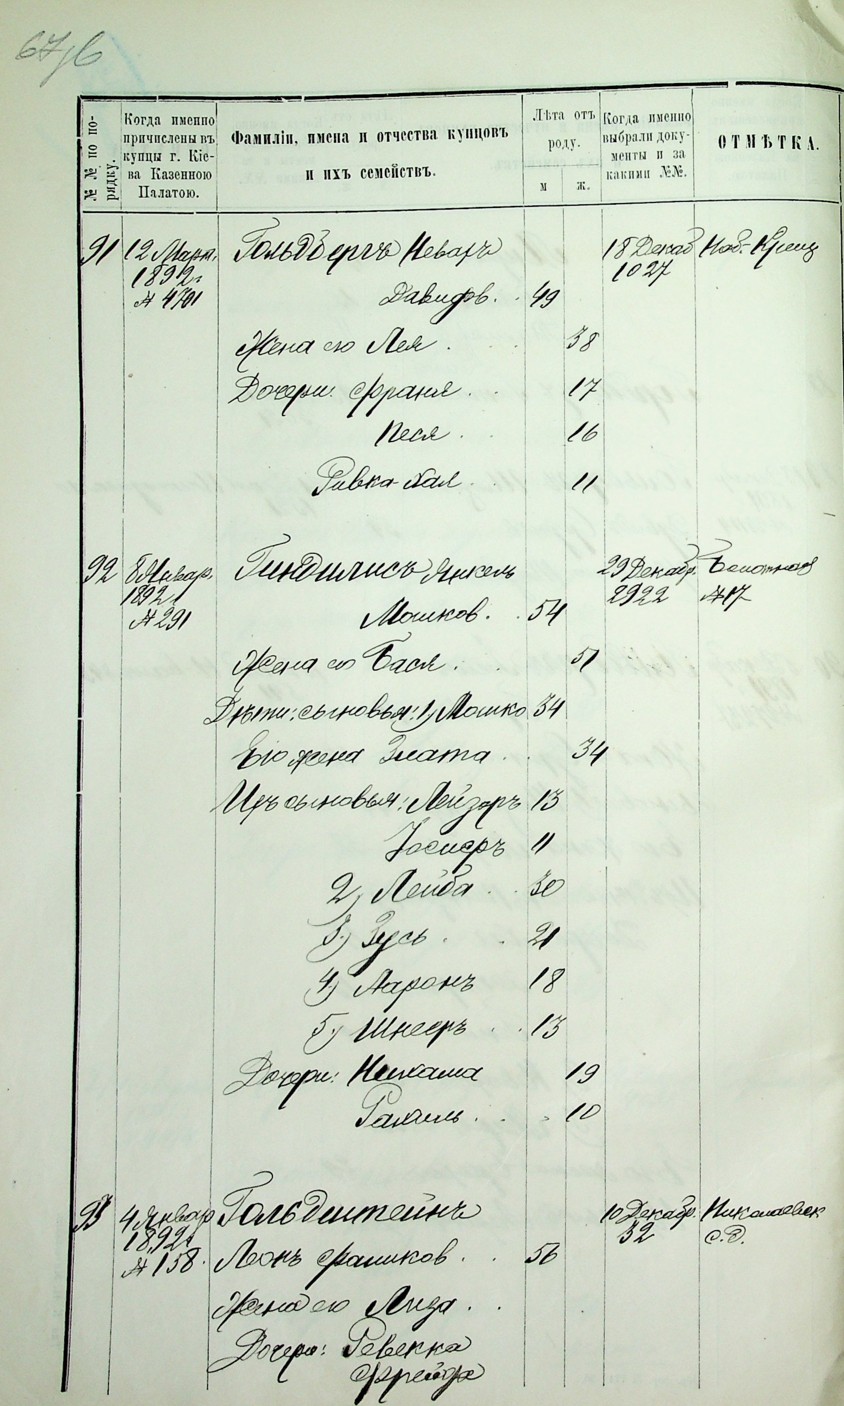 67/6
№ № по по-
рядку.
Когда именно
причислены въ
купцы г. Кіе-
ва Казенною
Палатою.
Фамиліи, имена и отчества купцовъ
и ихъ семействъ.
Лѣта отъ
роду.
м ж.
Когда именно
выбрали доку-
менты и за
какими №№.
ОТМѢТКА.
91 12 Март. Гольдбергъ 18 Декаб
1892 г. 1027
№ 4701 Давидов. 49
Жена его Лея 38
Дочери: Франя 17
Песя 16
Ривка-Хая 11
92 8 Январ. Гиндилисъ Янкель 29 Декабр.
1892 г. 2922 №17
№ 291 Мошков. 54
Жена его Бася 51
Дѣти: сыновья: 1) Мошко 34
Его жена Злата 34
Ихъ сыновья: Лейзеръ 13
Іосифъ 11
2) Лейба 30
3) Зусь 21
4) Ааронъ 18
5) Шнееръ 13
Дочери: Нехама 19
Рахиль 10
93 4 Январ Гольдштейнъ 10 Декабр. Николаевск
1892 г. 52 с. д.
№ 158 Леонъ 56
Жена его Лиза
Дочери: Ревекка
Фрейда